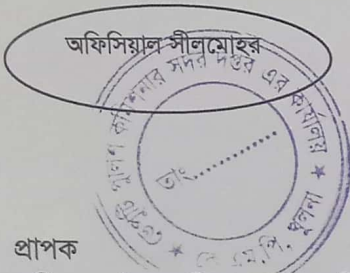 অফিসিয়াল সীলমোহর
ডেপুটি পুলিশ কমিশনার সদর দপ্তর এর কার্যালয়
তাং..............
কে এম,পি, খুলনা
প্রাপক